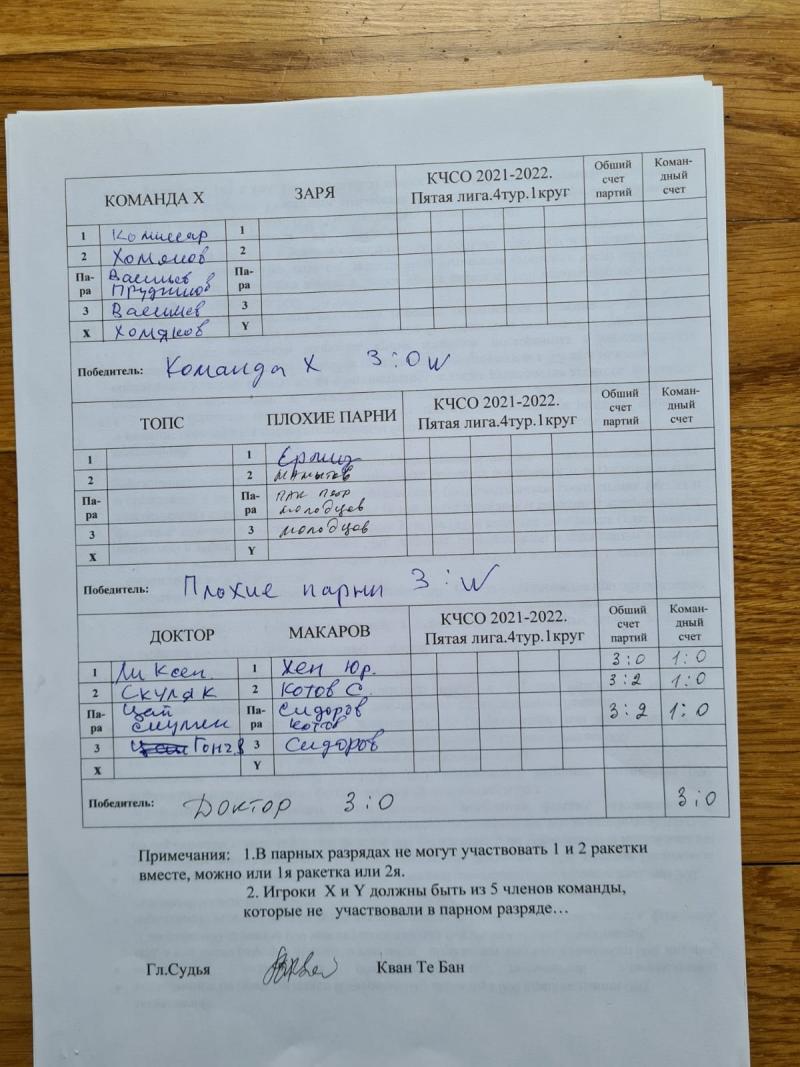 КОМАНДА Х ЗАРЯ КЧСО 2021-2022. Пятая лига.4тур.1круг Обший счет партий Коман-дный счет
1 Комиссар 1
2 Хомяков 2
Па-ра Васильев Прудников Па-ра
3 Васильев 3
Х Хомяков Y
Победитель: Команда Х 3:0 W
ТОПС ПЛОХИЕ ПАРНИ КЧСО 2021-2022. Пятая лига.4тур.1круг Обший счет партий Коман-дный счет
1 1
2 2
Па-ра Па-ра Молодцов
3 3 Молодцов
Х Y
Победитель: Плохие парни 3: W
ДОКТОР МАКАРОВ КЧСО 2021-2022. Пятая лига.4тур.1круг Обший счет партий Коман-дный счет
1 Ли Ксен. 1 Хен Юр. 3:0 1:0
2 Скуляк 2 Котов С. 3:2 1:0
Па-ра Цай Па-ра Сидоров Котов 3:2 1:0
3 3 Сидоров
Х Y
Победитель: Доктор 3:0 3:0
Примечания: 1.В парных разрядах не могут участвовать 1 и 2 ракетки
вместе, можно или 1я ракетка или 2я.
2. Игроки Х и Y должны быть из 5 членов команды,
которые не участвовали в парном разряде…
Гл.Судья Кван Те Бан